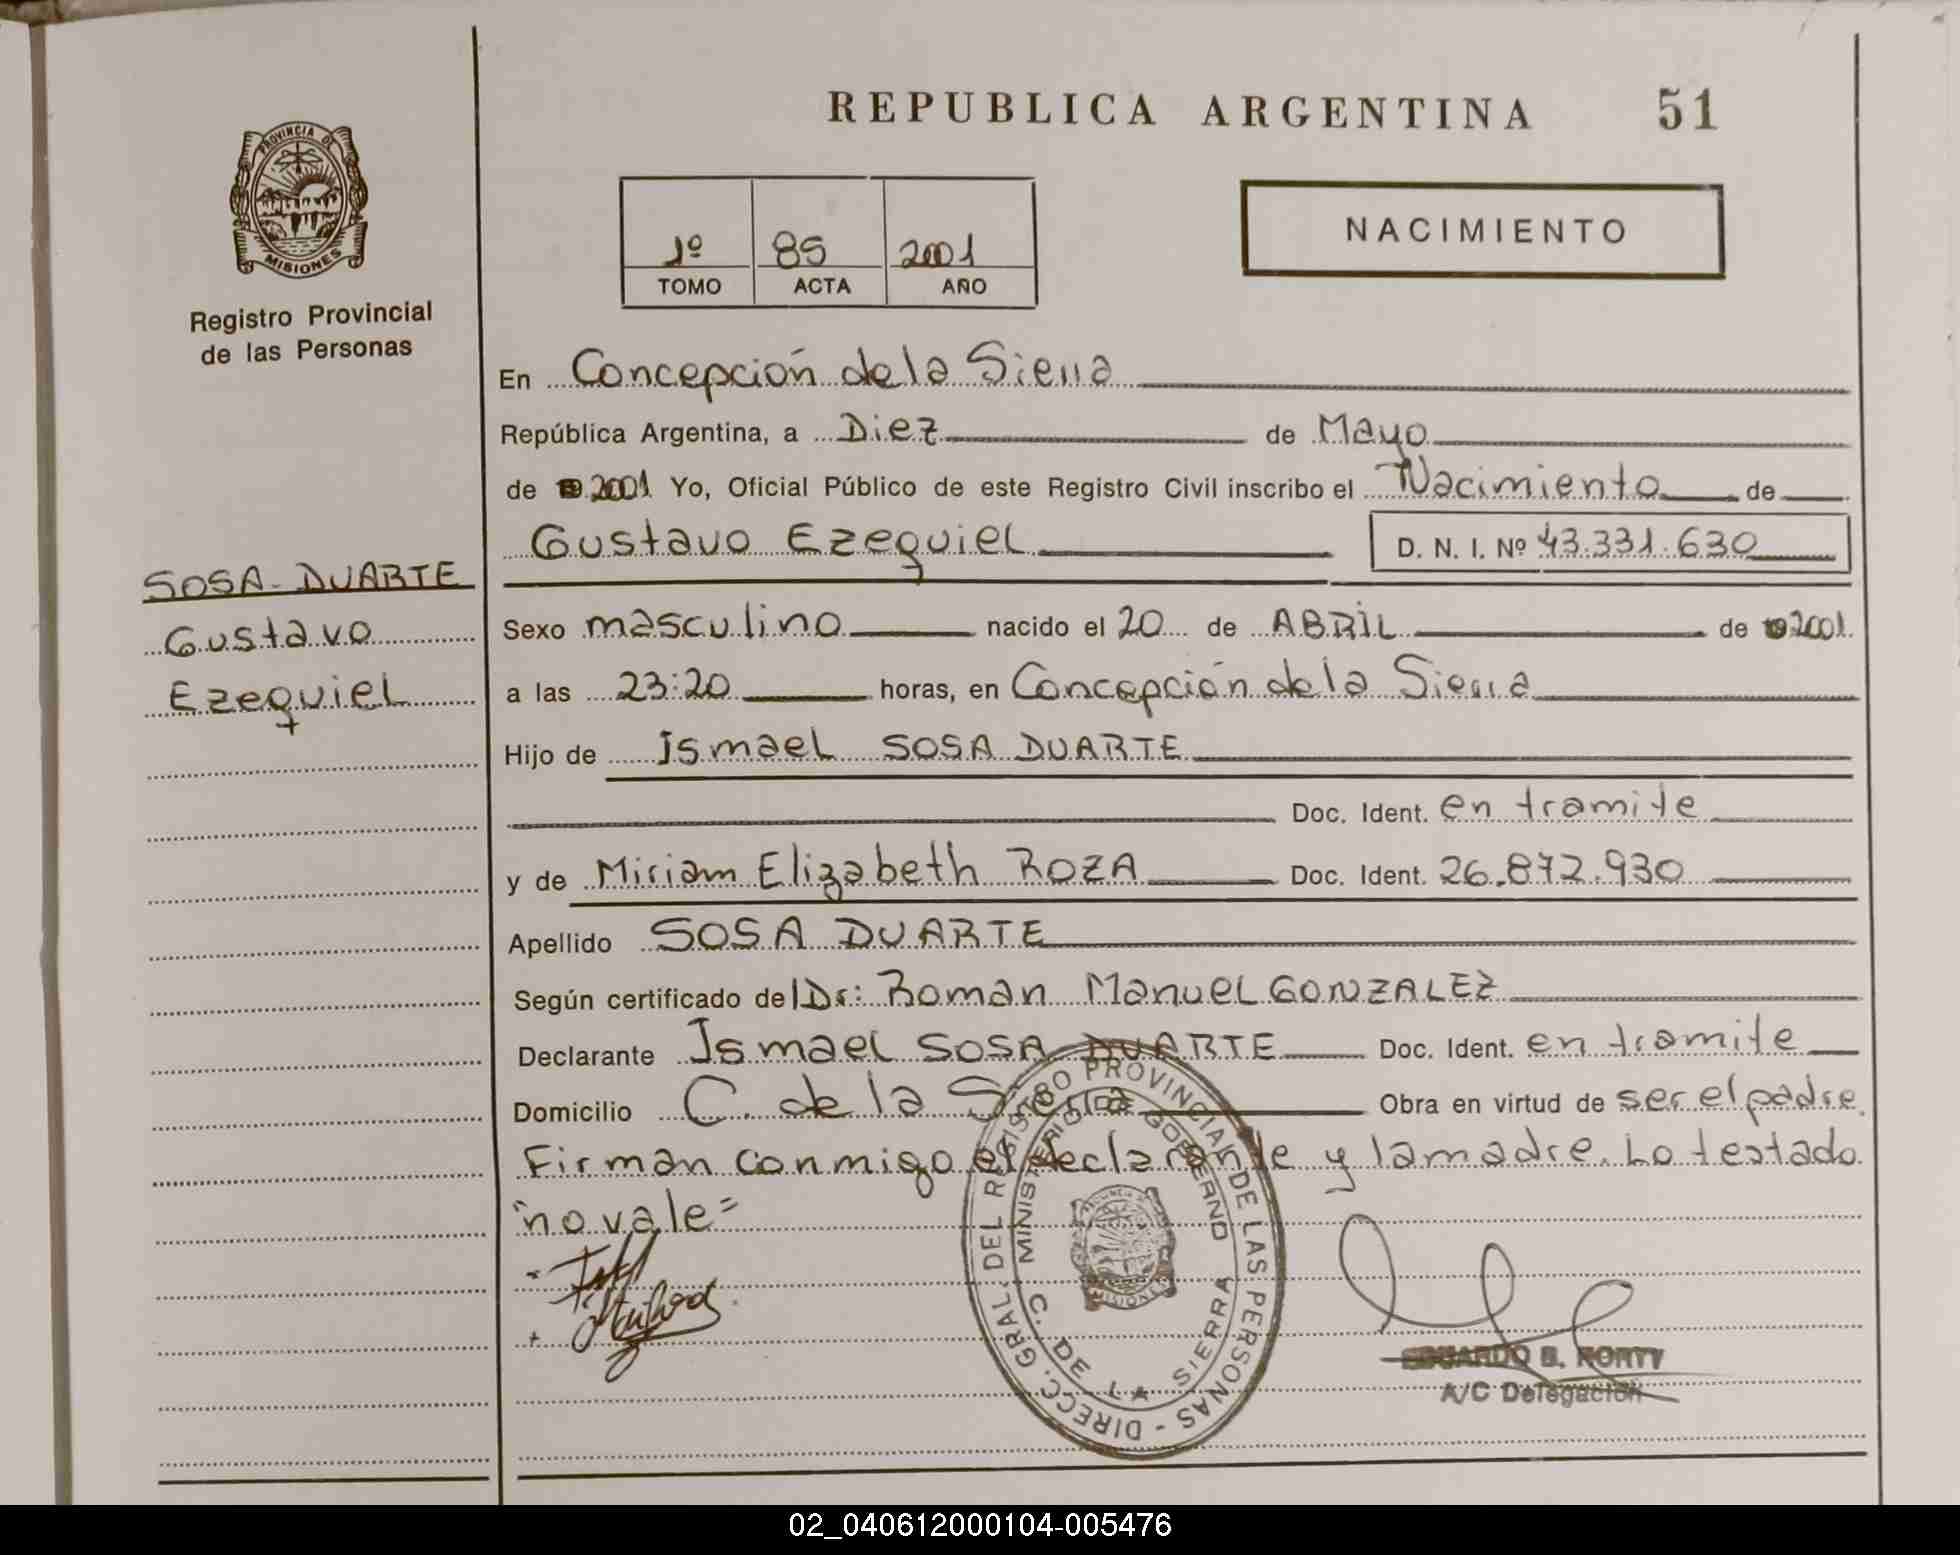 REPUBLICA ARGENTINA 51
PROVINCIA DE
MISIONES
Registro Provincial
de las Personas
1º 85 2001
TOMO ACTA AÑO
NACIMIENTO
En Concepción de la Sierra
República Argentina, a Diez de Mayo
de 2001 Yo, Oficial Público de este Registro Civil inscribo el Nacimiento de
Gustavo Ezequiel D. N. I. Nº 43.331.630
SOSA DUARTE
Gustavo
Ezequiel
Sexo masculino nacido el 20 de ABRIL de 2001
a las 23:20 horas, en Concepción de la Sierra
Hijo de Ismael SOSA DUARTE
Doc. Ident. en tramite
y de Miriam Elizabeth ROZA Doc. Ident. 26.872.930
Apellido SOSA DUARTE
Según certificado del Dr: Roman Manuel GONZALEZ
Declarante Ismael SOSA DUARTE Doc. Ident. en tramite
Domicilio C. de la Sierra Obra en virtud de ser el padre.
Firman conmigo el declarante y la madre. Lo testado
"no vale=
DIRECC. GRAL. DEL REGISTRO PROVINCIAL DE LAS PERSONAS -
MINISTERIO DE GOBERNO
C. DE LA SIERRA
MISIONES
EDUARDO B. RORTY
A/C Delegación
02_040612000104-005476